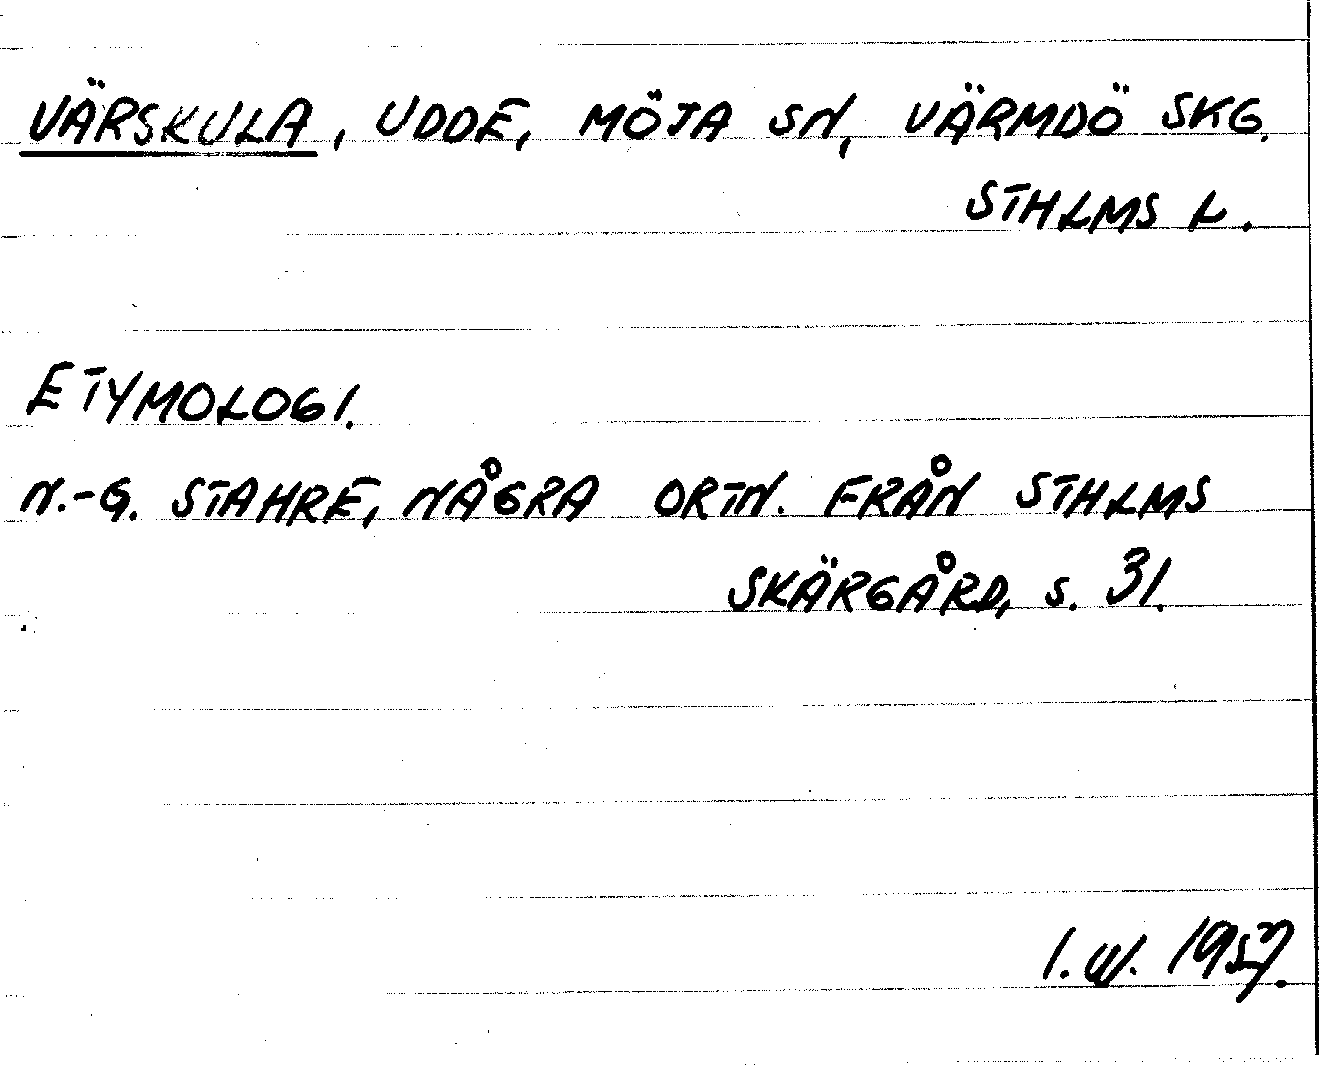 VÄRSKULA, UDDE, MÖJA SN, VÄRMDÖ SKG.
STHLMS L.
ETYMOLOGI.
N.-G. STAHRE, NÅGRA ORTN. FRÅN STHLMS
SKÄRGÅRD, S. 31.
I.W. 1957.